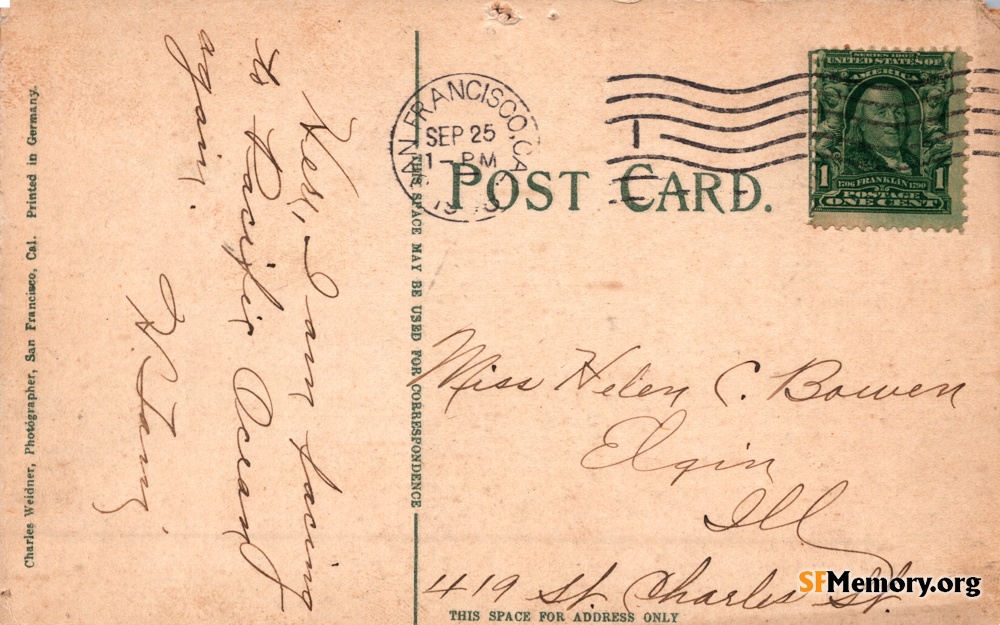 Yes, I am facing
to Pacific Ocean
again.
Charles Weidner, Photographer, San Francisco, Cal. Printed in Germany.
THIS SPACE MAY BE USED FOR CORRESPONDENCE
SAN FRANCISCO, CA.
SEP 25
1-PM
POST CARD.
SERIES 1902
UNITED STATES OF
AMERICA
1 1
1706 FRANKLIN 1790
POSTAGE
ONE CENT
Miss Helen C. Bowen
Elgin
Ill
419 St. Charles St.
THIS SPACE FOR ADDRESS ONLY
SFMemory.org